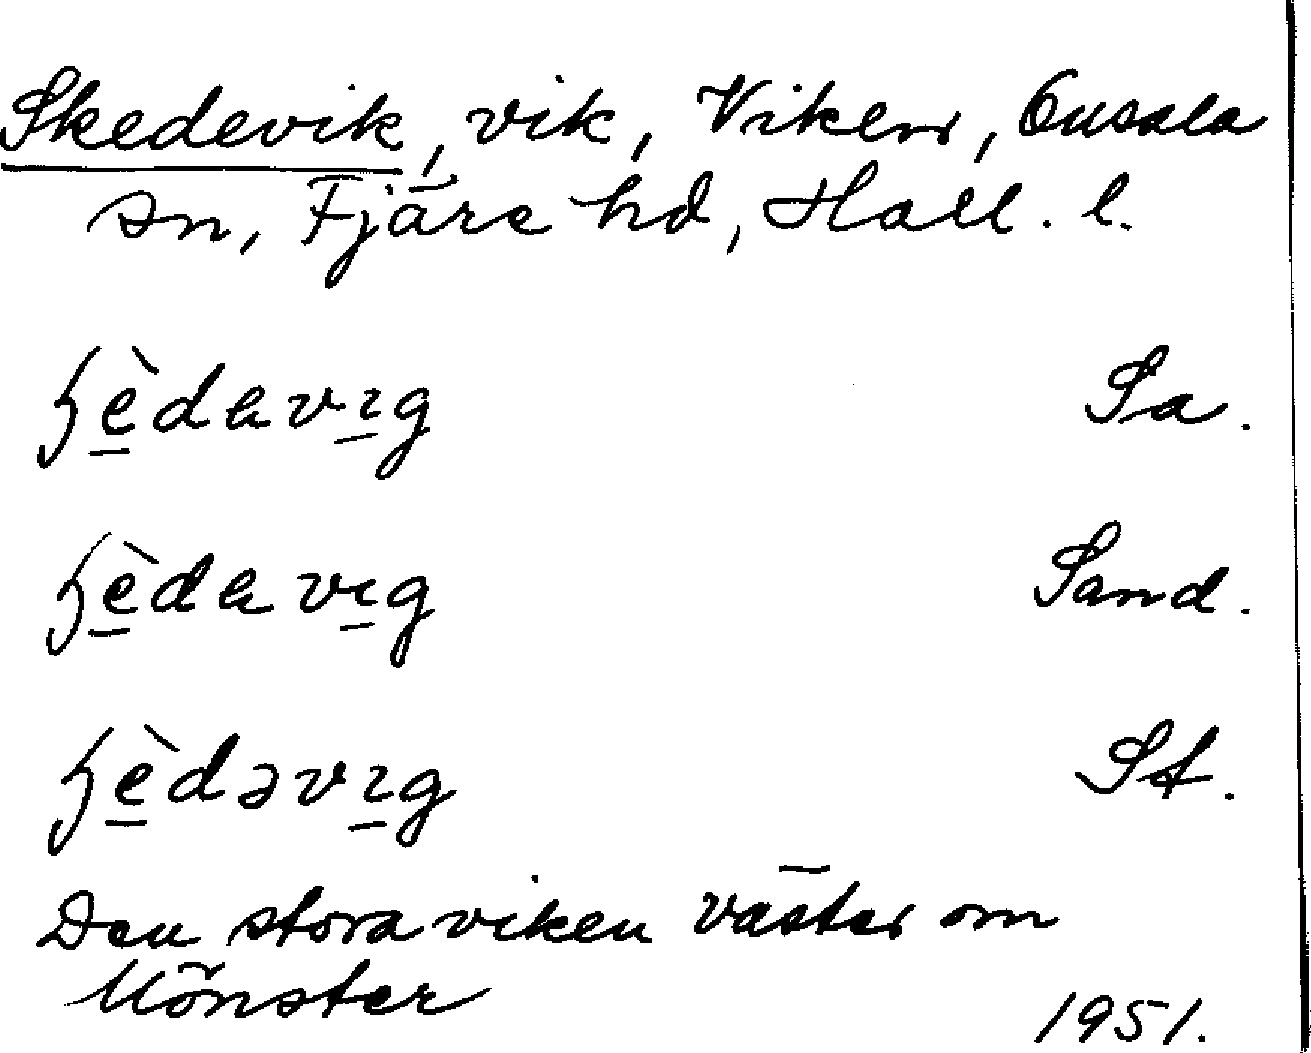 Skedevik, vik, Viken, Onsala
sn, Fjäre hd, Hall. l.
Sa.
Sand.
St.
Den stora viken väster om
Mönster
1951.